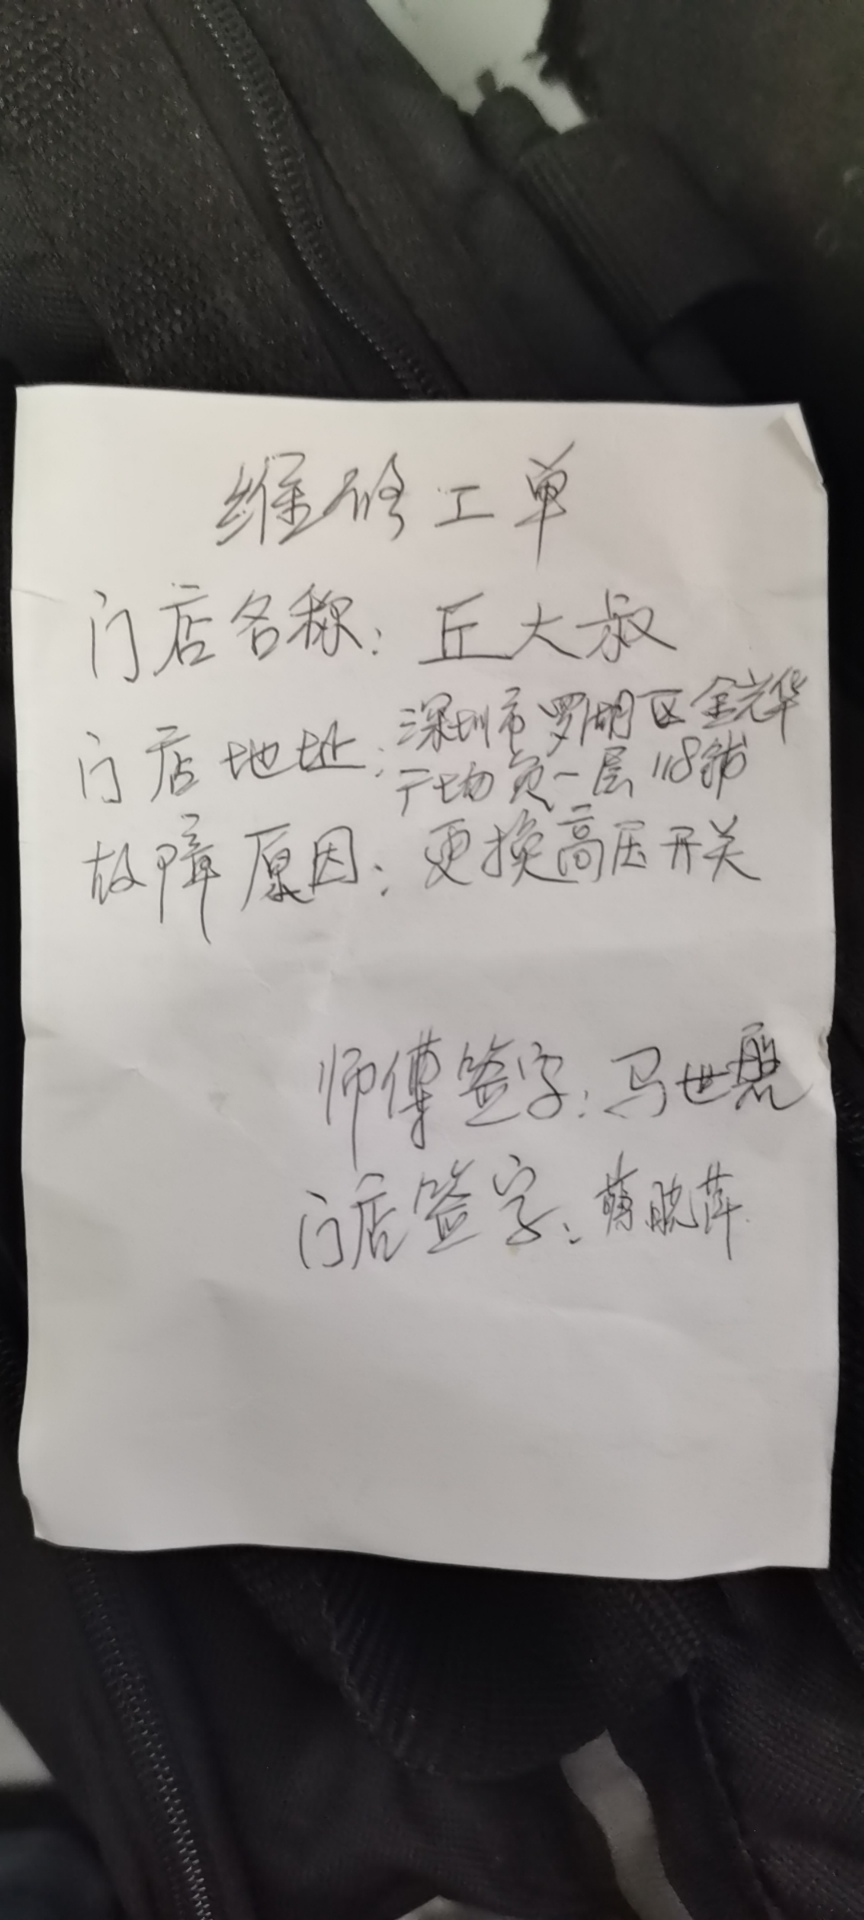 维修工单
门店名称：丘大叔
门店地址：深圳市罗湖区金光华
广场负一层118铺
故障原因：更换高压开关
师傅签字：马世
门店签字：晓萍